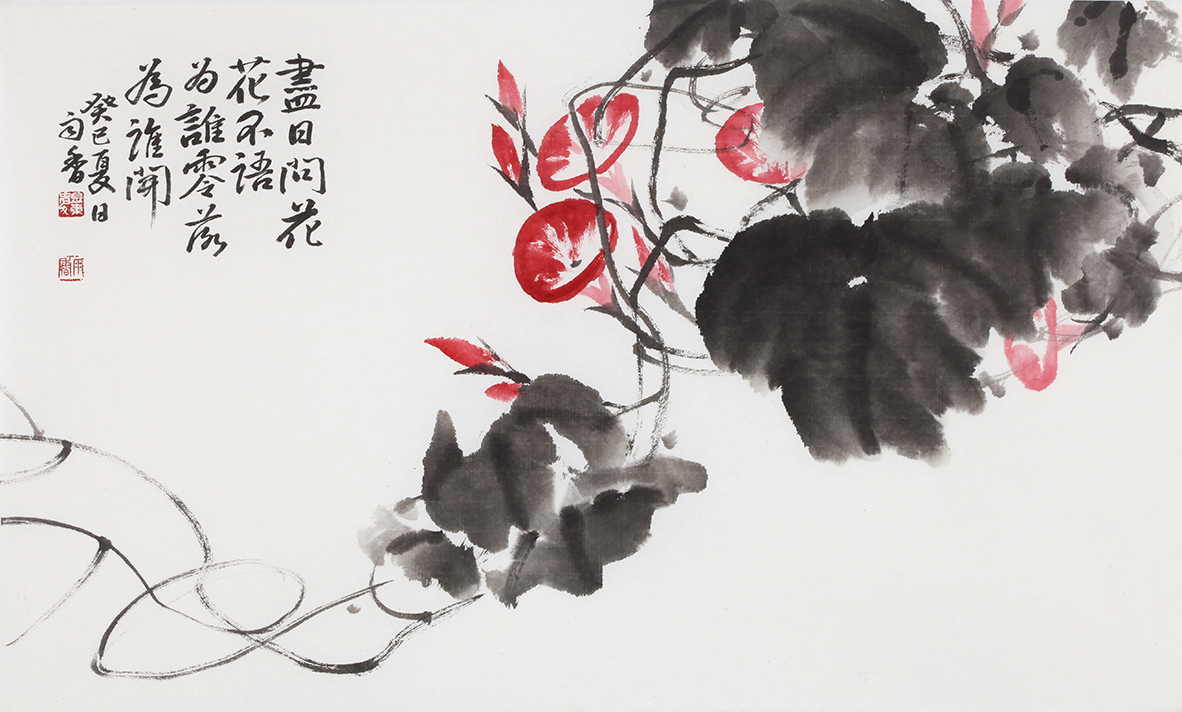 盡日問花
花不語
为誰零落
為誰開
癸巳夏日
香